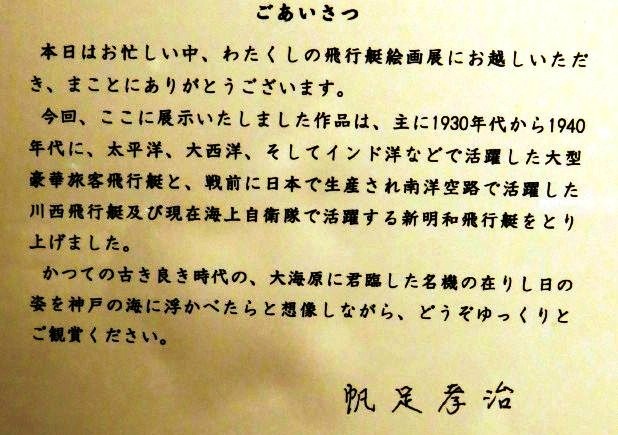 ごあいさつ
本日はお忙しい中、わたくしの飛行艇絵画展にお越しいただ
き、まことにありがとうございます。
今回、ここに展示いたしました作品は、主に1930年代から1940
年代に、太平洋、大西洋、そしてインド洋などで活躍した大型
豪華旅客飛行艇と、戦前に日本で生産され南洋空路で活躍した
川西飛行艇及び現在海上自衛隊で活躍する新明和飛行艇をとり
上げました。
かつての古き良き時代の、大海原に君臨した名機の在りし日の
姿を神戸の海に浮かべたらと想像しながら、どうぞゆっくりと
ご観賞ください。
帆足孝治